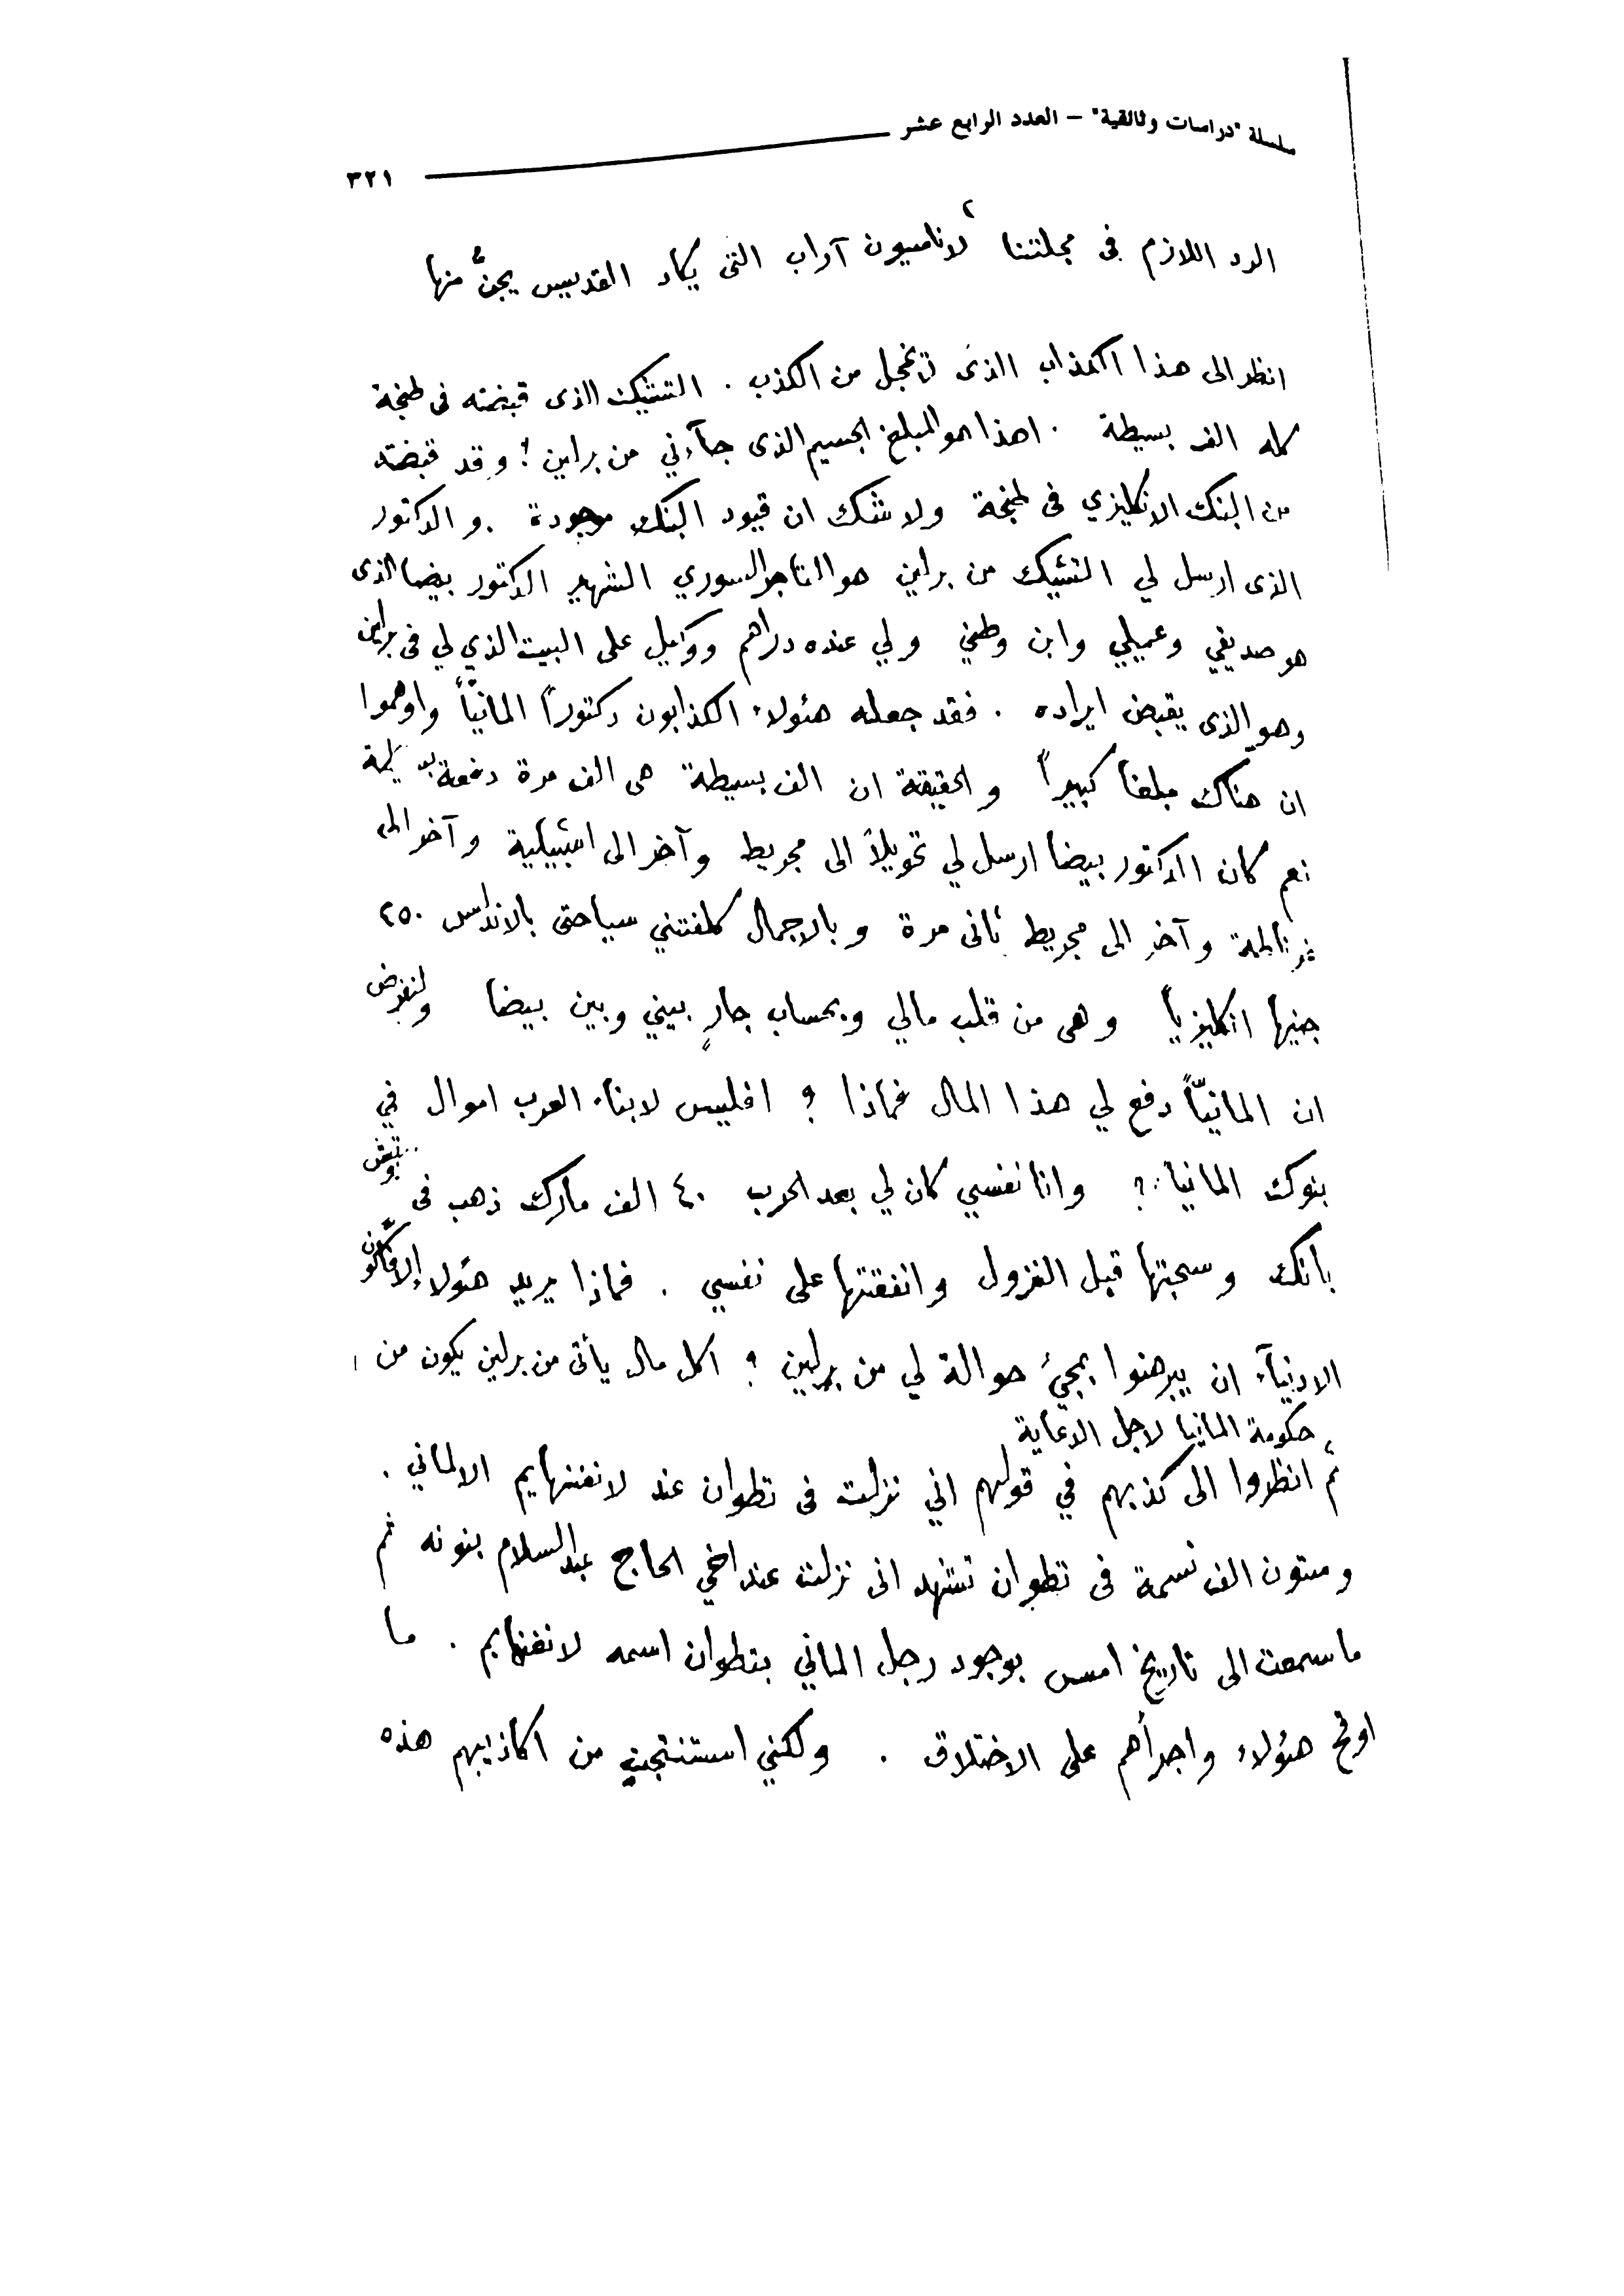 سلسلة "دراسات وثائقية" – العدد الرابع عشر
٣٢١
الرد اللازم فى مجلتنا لاناسيون آراب التى يكاد القديس يجنّ منها
انظر الى هذا الكذاب الذى لا يخجل من الكذب . التشيك الذى قبضته فى طنجة
كله الف بسيطة . اهذا هو المبلغ الجسيم الذى جآءني من براين ؟ وقد قبضته
من البنك الانكليزي فى طنجة ولا شك ان قيود البنك موجودة . والدكتور
الذى ارسل لي التشيك من براين هو التاجر السوري الشهير الدكتور بيضا الذى
هو صديقي وعميلي وابن وطني ولي عنده دراهم ووكيل على البيت الذي لي فى براين
وهو الذى يقبض ايراده . فقد جعله هئولاء الكذابون دكتوراً المانيّاً واوهموا
ان هناك مبلغاً كبيراً والحقيقة ان الف بسيطة هى الف مرة دفعة
نعم كان الدكتور بيضا ارسل لي تحويلاً الى مجريط وآخر الى اشبيلية وآخر الى
غرناطة وآخر الى مجريط ثانى مرة وبالاجمال كلفتني سياحتى بالاندلس ٢٥٠
جنيها انكليزياً وهى من قلب مالي وبحساب جارٍ بيني وبين بيضا ولنفرض
ان المانيّاً دفع لي هذا المال فماذا ؟ افليس لابناء العرب اموال في
بنوك المانيا ؟ وانا نفسي كان لي بعد الحرب ٤٠ الف مارك ذهب فى دويتش
بانك وسحبتها قبل النزول وانفقتها على نفسي . فماذا يريد هئولاء الافّاكون
الادنيآء ان يبرهنوا بمجئ حوالة لي من برلين ؟ اكل مال يأتى من برلين يكون من
حكومة المانيا لاجل الدعاية
ثم انظروا الى كذبهم في قولهم اني نزلت فى تطوان عند لانغنهايم الالماني .
وستون الف نسمة فى تطوان تشهد انى نزلت عند اخي الحاج عبد السلام بنونه ثم
ما سمعت الى تاريخ امس بوجود رجل الماني بتطوان اسمه لانغنهايم . ما
اوقح هئولاء واجرأهم على الاختلاق . ولكني استنتجت من اكاذيبهم هذه